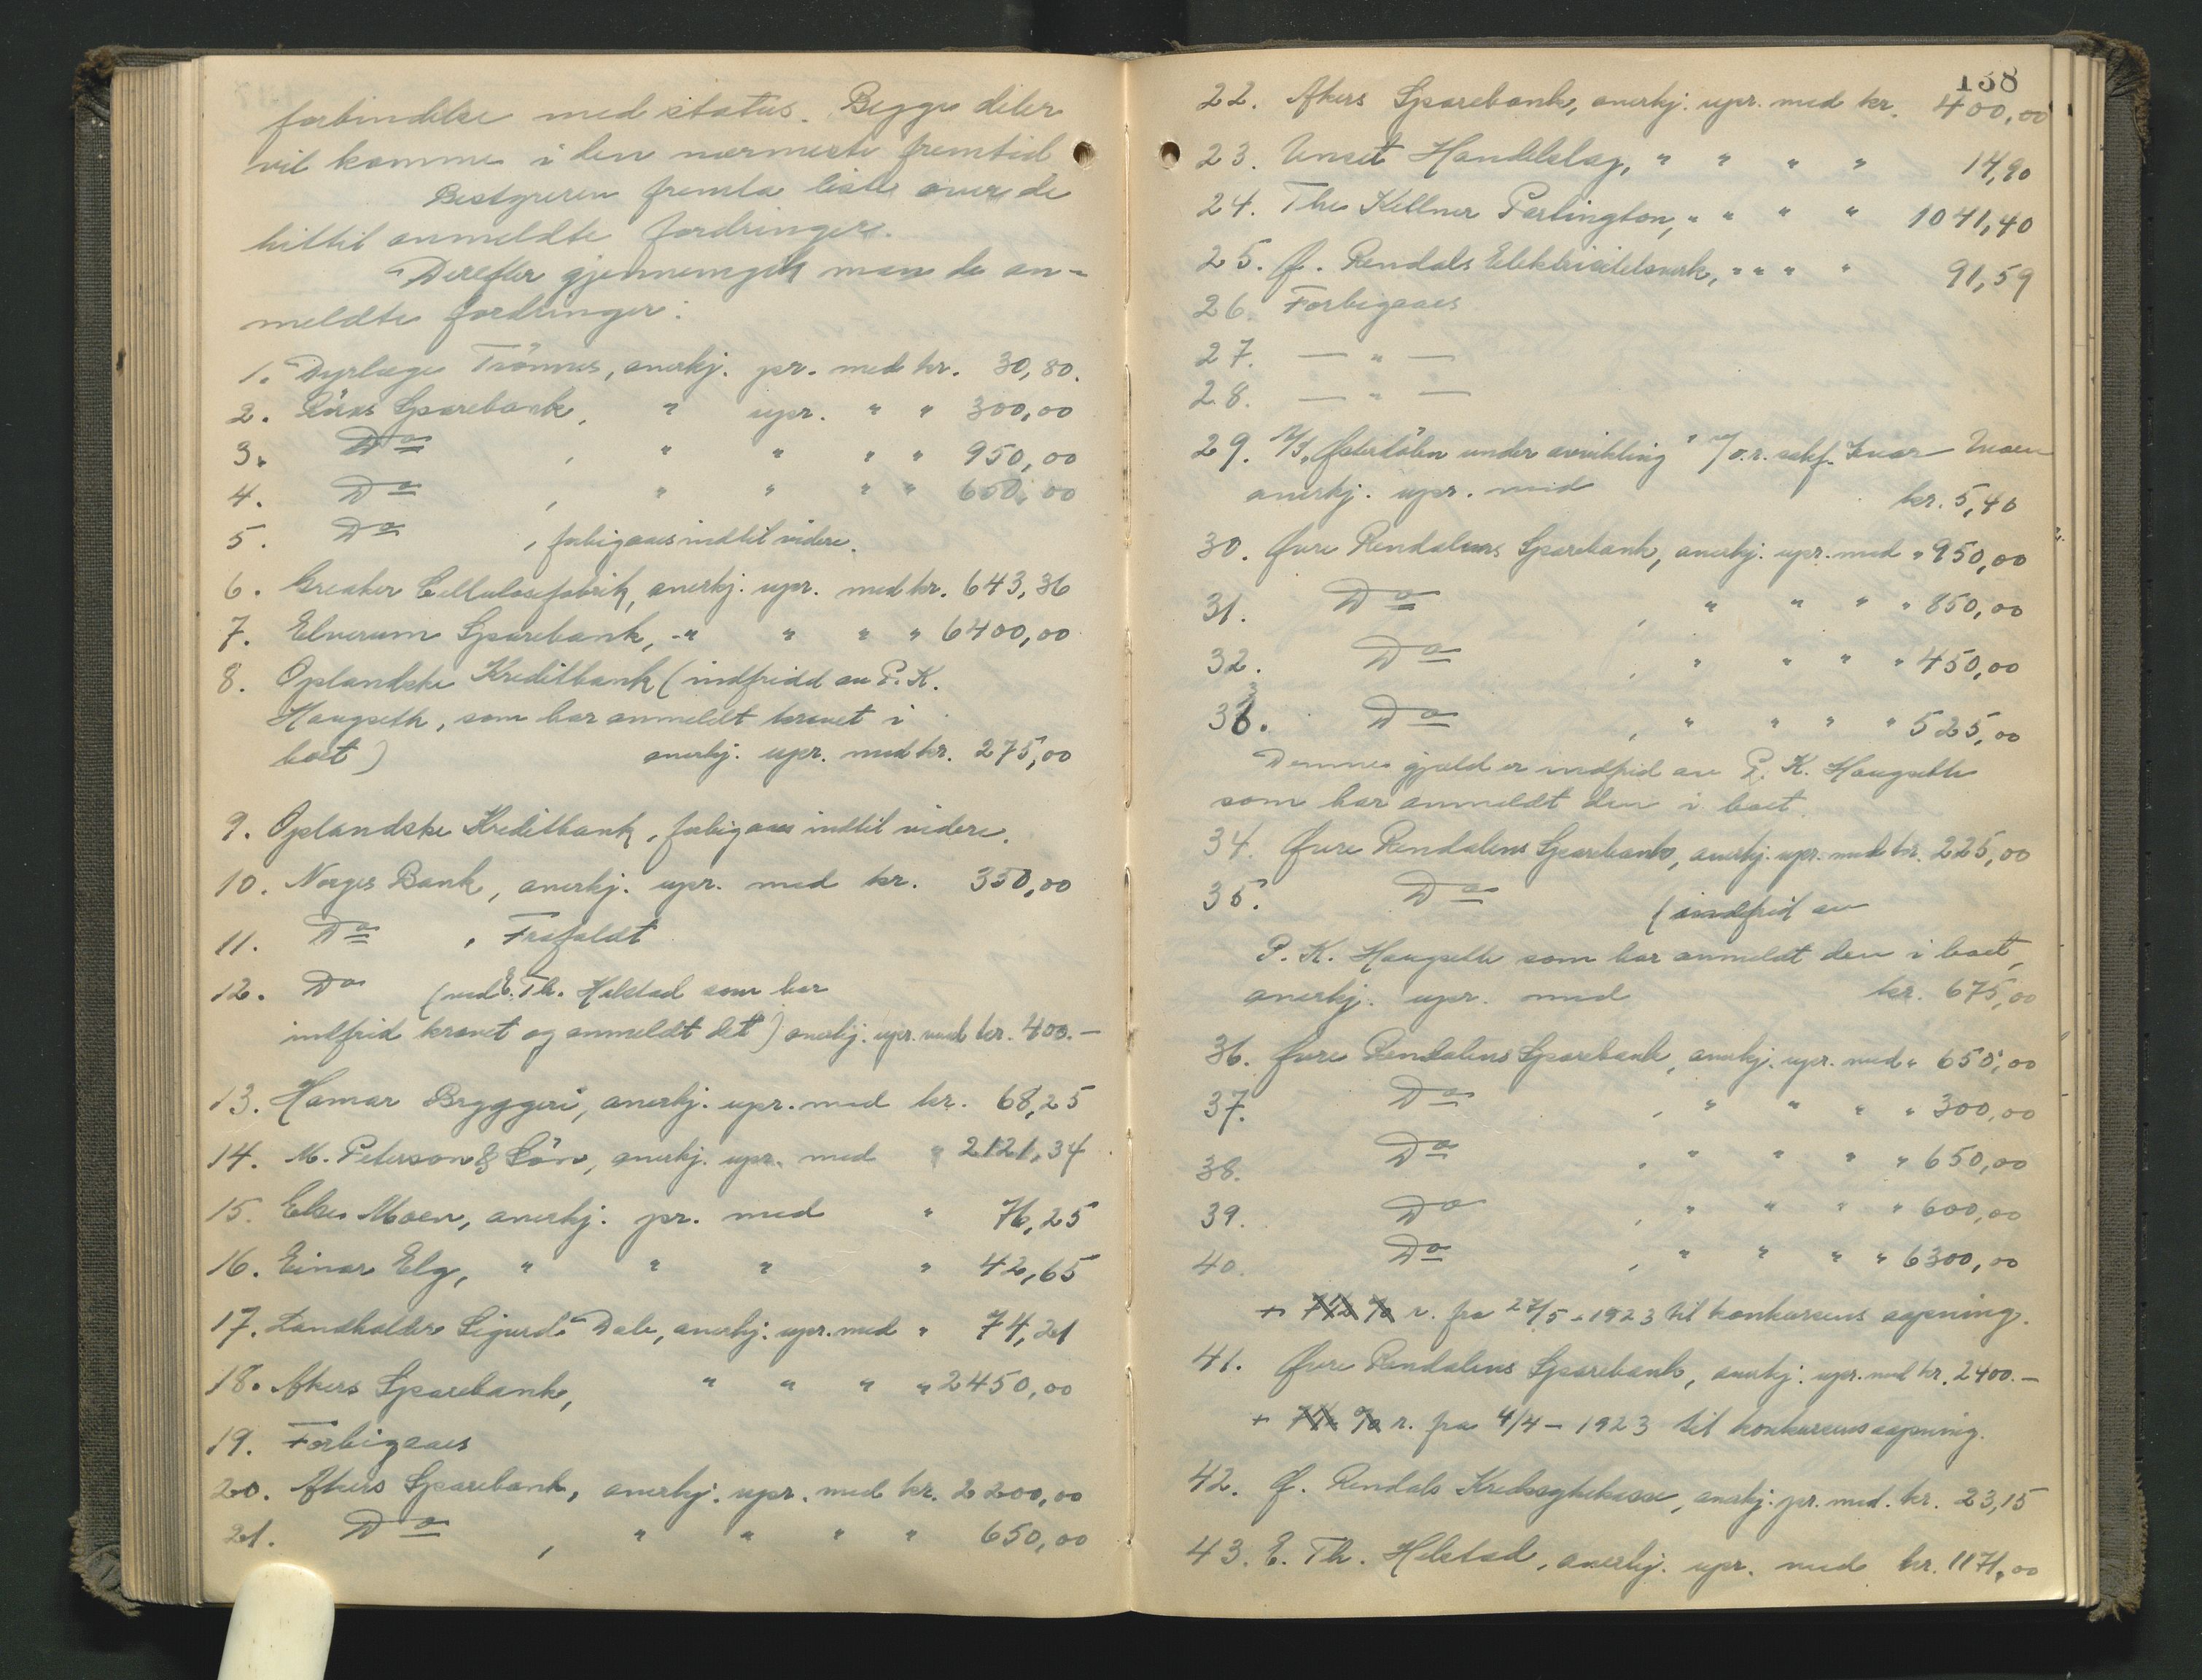 forbindelse med status. Begge deler
vil komme i den nærmeste fremtid
Bestyreren fremla liste over de
hittil anmeldte fordringer.
Derefter gjennemgik man de an-
meldte fordringer:
1. Dyrlæge Trönnes, anerkj. pr. med kr. 30,80.
2. Röros Sparebank, " upr. " " 300,00
3. Do , " " " " 950,00
4. Do , " " " " 650,00
5. Do , forbigaaes indtil videre.
6. Greaker Cellulosefabrik, anerkj. upr. med kr. 643,36
7. Elverum Sparebank, -" " " " 6400,00
8. Oplandske Kreditbank (indfridd av P. K.
Haugseth, som har anmeldt kravet i
boet) anerkj. upr. med kr. 275,00
9. Oplandske Kreditbank, forbigaaes indtil videre.
10. Norges Bank, anerkj. upr. med kr. 350,00
11. Do , Frafaldt
12. Do (ved E. Th. Helstad som har
indfrid kravet og anmeldt det) anerkj. upr. med kr. 400.—
13. Hamar Bryggeri, anerkj. upr. med kr. 68,25
14. M. Peterson & Sön, anerkj. upr. med " 2121,34
15. Else Moen, anerkj. pr. med " 76,25
16. Einar Elg, " " " " 42,65
17. Landhandler Sigurd Dale, anerkj. upr. med " 74,21
18. Akers Sparebank, " " " " 2450,00
19. Forbigaaes
20. Akers Sparebank, anerkj. upr. med kr. 2200,00
21. Do , " " " " 650,00
138
22. Akers Sparebank, anerkj. upr. med kr. 400,00
23. Unset Handelslag, " " " " 14,90
24. The Kellner Partington, " " " " 1041,40
25. Ø. Rendals Elektricitetsverk, " " " " 91,59
26. Forbigaaes
27. — " —
28. — " —
29. A/S. Østerdölen under avvikling v/o.r. sakf. Ivar Moen
anerkj. upr. med kr. 5,40
30. Øvre Rendalens Sparebank, anerkj. upr. med " 950,00
31. Do , " " " " 850,00
32. Do , " " " " 450,00
33. Do , " " " " 525,00
Denne gjæld er indfrid av P. K. Haugseth
som har anmeldt den i boet.
34. Øvre Rendalens Sparebank, anerkj. upr. med kr. 225,00
35. Do (indfrid av
P. K. Haugseth som har anmeldt den i boet,
anerkj. upr. med kr. 675,00
36. Øvre Rendalens Sparebank, anerkj. upr. med " 650,00
37. Do , " " " " 300,00
38. Do , " " " " 650,00
39. Do , " " " " 600,00
40. Do , " " " " 6300,00
+ 7½ % r. fra 27/5 - 1923 til konkursens aapning.
41. Øvre Rendalens Sparebank, anerkj. upr. med kr. 2400.—
+ 7½ % r. fra 4/4 - 1923 til konkursens aapning.
42. Ø. Rendals Kredssykekasse, anerkj. pr. med. kr. 23,15
43. E. Th. Helstad, anerkj. upr. med kr. 1171,00